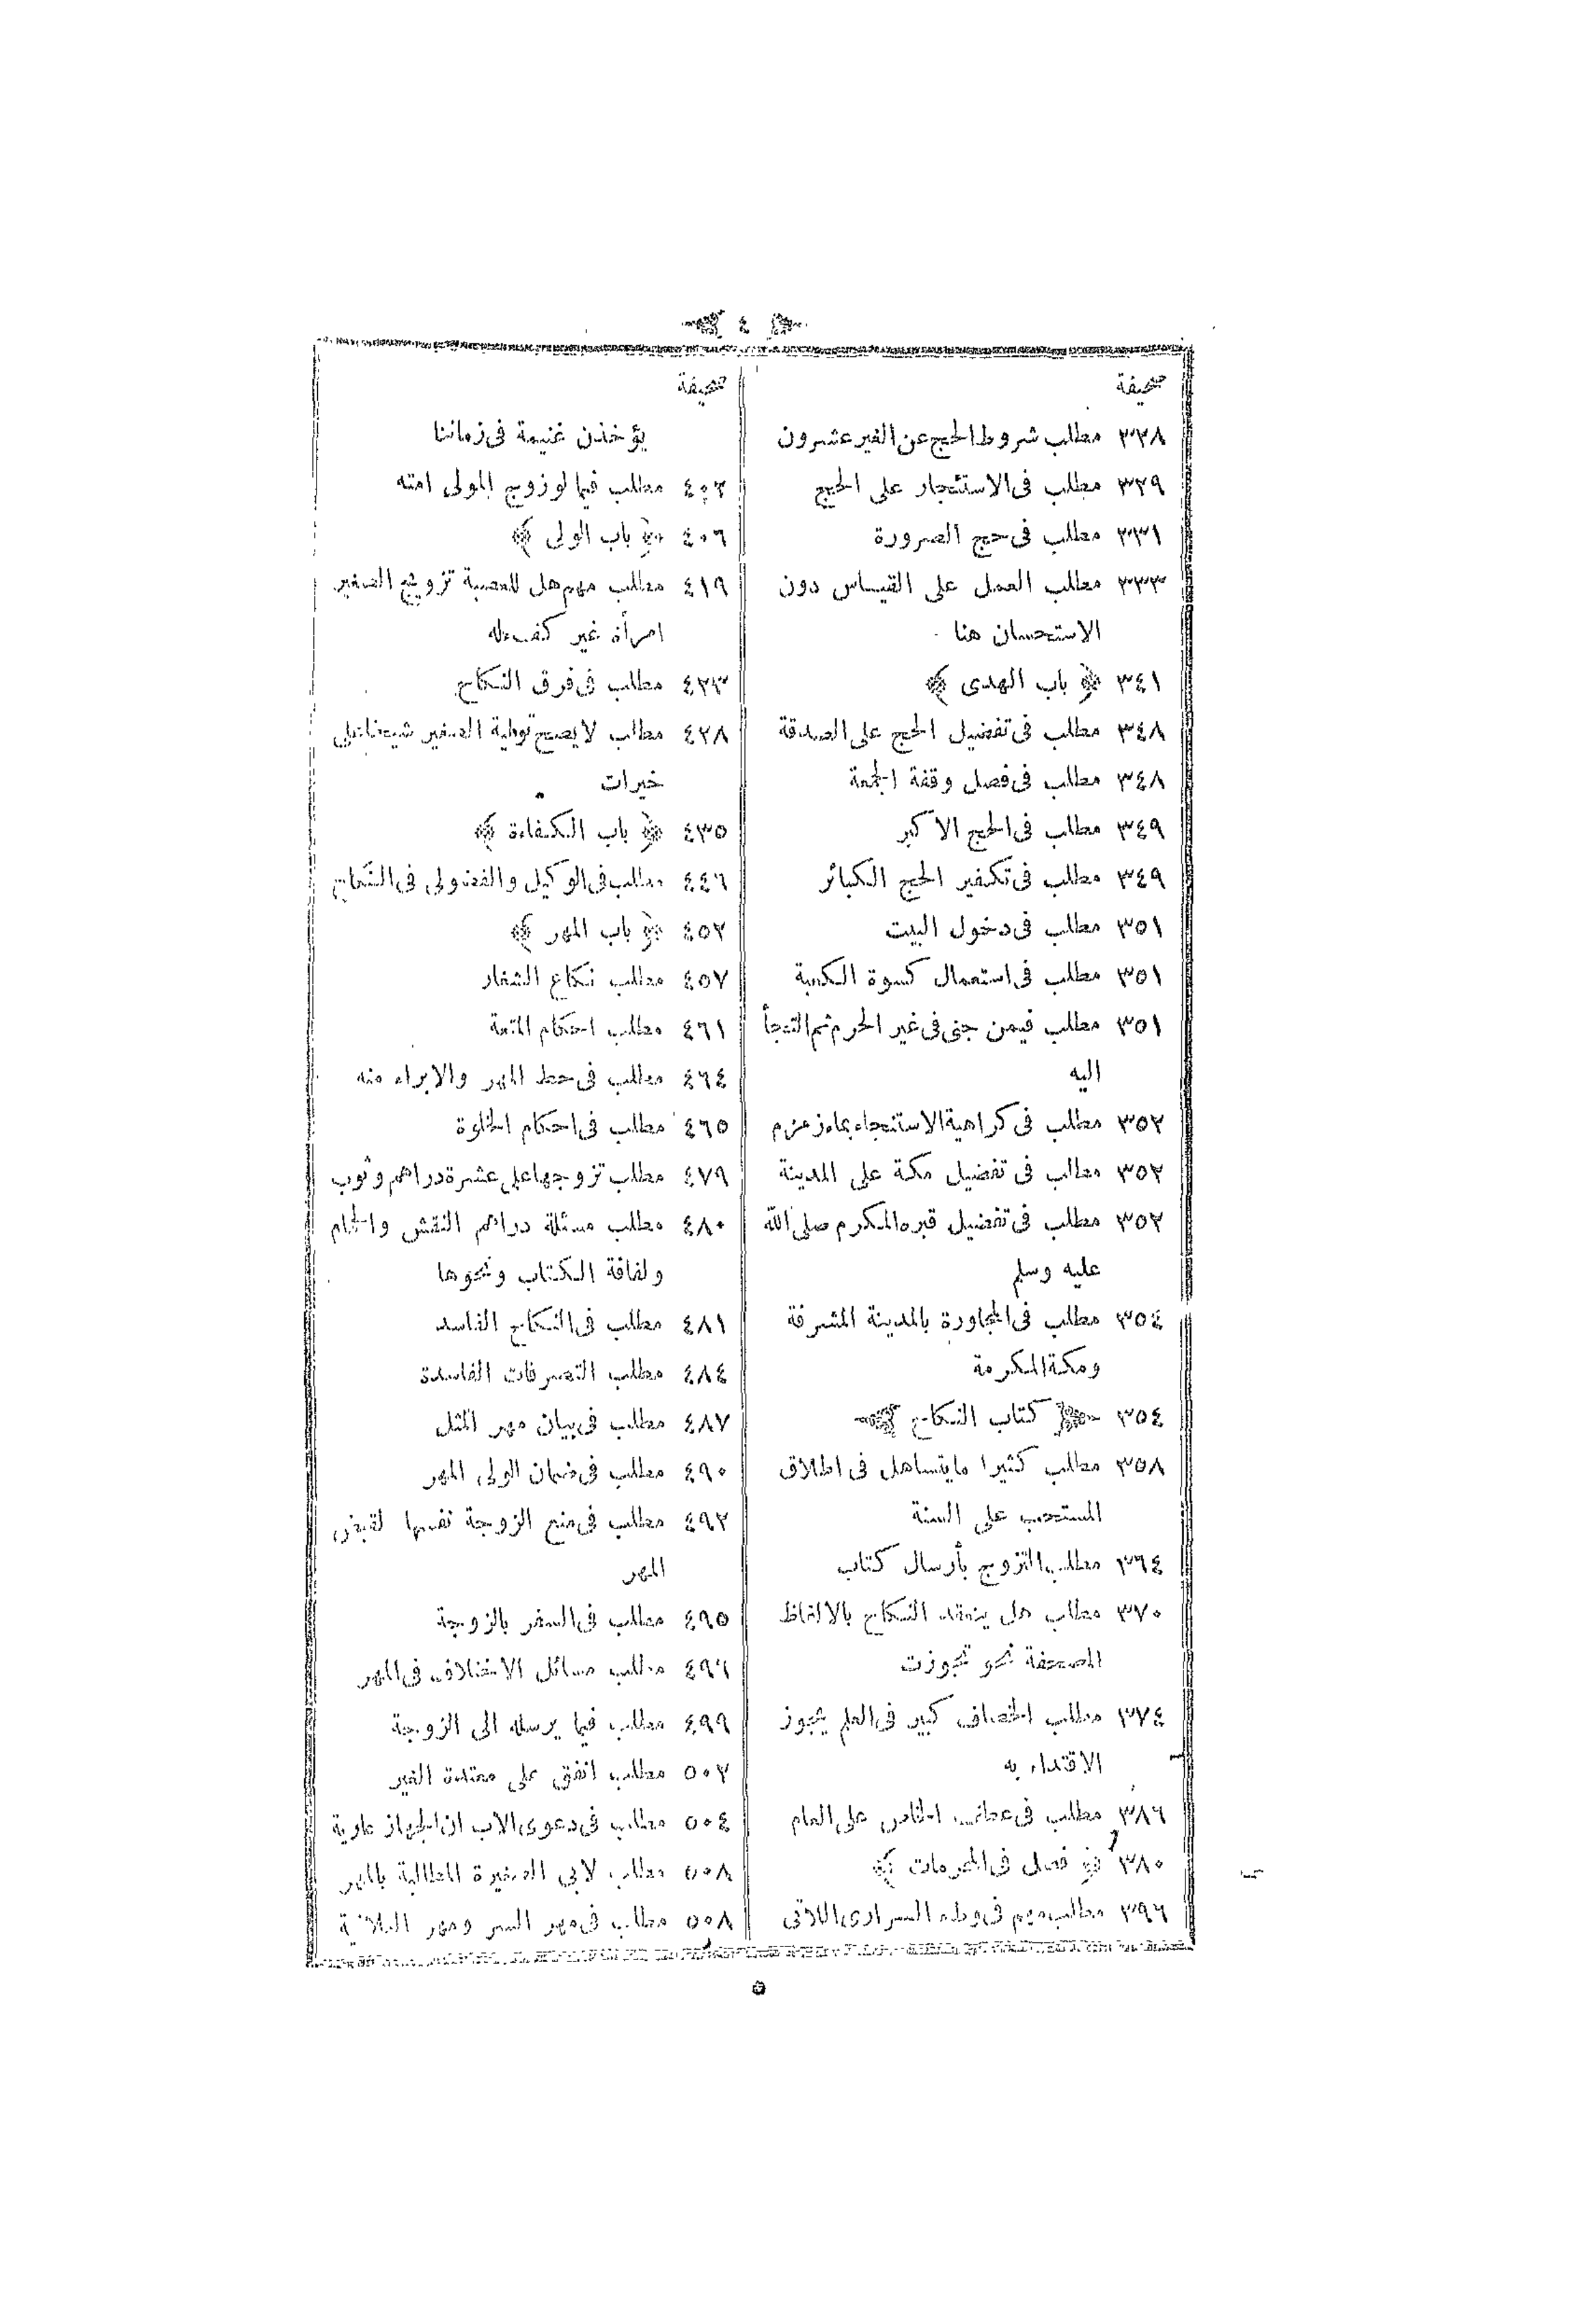 ٤
صحيفة
٣٢٨ مطلب شروط الحج عن الغير عشرون
٣٢٩ مطلب في الاستئجار على الحج
٣٣١ مطلب في حج الصرورة
٣٣٣ مطلب العمل على القياس دون
الاستحسان هنا
٣٤١ ﴿ باب الهدى ﴾
٣٤٨ مطلب في تفضيل الحج على الصدقة
٣٤٨ مطلب في فصل وقفة الجمعة
٣٤٩ مطلب في الحج الاكبر
٣٤٩ مطلب في تكفير الحج الكبائر
٣٥١ مطلب في دخول البيت
٣٥١ مطلب في استعمال كسوة الكعبة
٣٥١ مطلب فيمن جنى في غير الحرم ثم التجأ
اليه
٣٥٢ مطلب في كراهية الاستنجاء بماء زمزم
٣٥٢ مطلب في تفضيل مكة على المدينة
٣٥٢ مطلب في تفضيل قبره المكرم صلى الله
عليه وسلم
٣٥٤ مطلب في المجاورة بالمدينة المشرفة
ومكة المكرمة
٣٥٤ كتاب النكاح
٣٥٨ مطلب كثيرا ما يتساهل في اطلاق
المستحب على السنة
٣٦٤ مطلب التزوج بأرسال كتاب
٣٧٠ مطلب هل ينعقد النكاح بالالفاظ
المصحفة نحو تجوزت
٣٧٤ مطلب الخصاف كبير في العلم يجوز
الاقتداء به
٣٨٦ مطلب في عطف الخاص على العام
٣٨٠ ﴿ فصل في المحرمات ﴾
٣٩٦ مطلب مهم في وطء السرارى اللاتى
صحيفة
يؤخذن غنيمة في زماننا
٤٠٣ مطلب فيما لو زوج المولى امته
٤٠٦ ﴿ باب الولى ﴾
٤١٩ مطلب مهم هل للعصبة تزويج الصغير
امرأة غير كفء له
٤٢٣ مطلب في فرق النكاح
٤٢٨ مطلب لا يصح تولية الصغير شيخا على
خيرات
٤٣٥ ﴿ باب الكفاءة ﴾
٤٤٦ مطلب في الوكيل والفضولى في النكاح
٤٥٢ ﴿ باب المهر ﴾
٤٥٧ مطلب نكاع الشغار
٤٦١ مطلب احكام المتعة
٤٦٤ مطلب في حط المهر والابراء منه
٤٦٥ مطلب في احكام الخلوة
٤٧٩ مطلب تزوجها على عشرة دراهم وثوب
٤٨٠ مطلب مسئلة دراهم النقش والحمام
ولفافة الكتاب ونحوها
٤٨١ مطلب في النكاح الفاسد
٤٨٤ مطلب التصرفات الفاسدة
٤٨٧ مطلب في بيان مهر المثل
٤٩٠ مطلب في ضمان الولى المهر
٤٩٢ مطلب في منع الزوجة نفسها لقبض
المهر
٤٩٥ مطلب في السفر بالزوجة
٤٩٦ مطلب مسائل الاختلاف في المهر
٤٩٩ مطلب فيما يرسله الى الزوجة
٥٠٢ مطلب انفق على معتدة الغير
٥٠٤ مطلب في دعوى الاب ان الجهاز عارية
٥٠٨ مطلب لابى الصغيرة المطالبة بالمهر
٥٠٨ مطلب في مهر السر ومهر العلانية